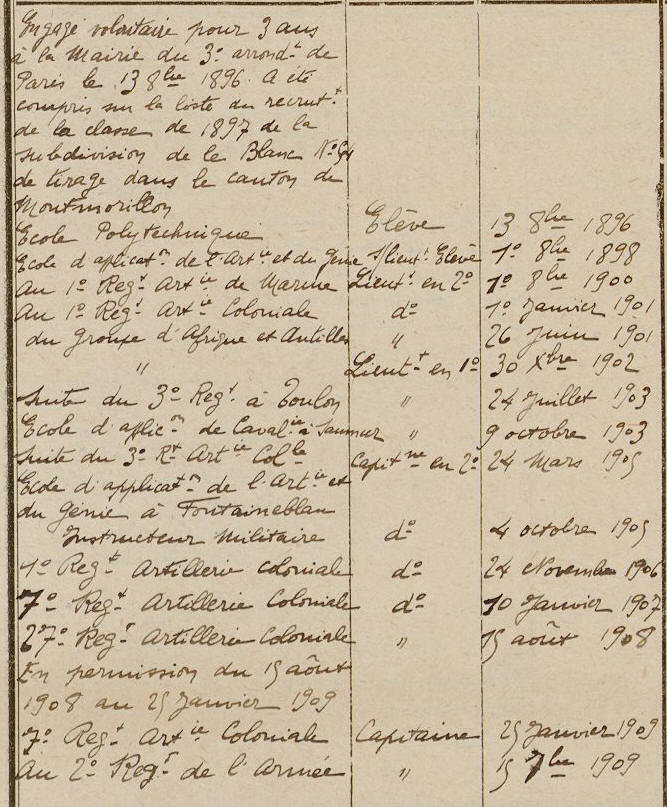 Engagé volontaire pour 3 ans
à la Mairie du 3e arrondt de
Paris le 13 8bre 1896. A été
compris sur la liste du recrutt
de la classe de 1897 de la
subdivision de le Blanc No
de tirage dans le canton de
Montmorillon
Ecole Polytechnique Elève 13 8bre 1896
Ecole d'applicatn de l'Artie et du Génie S/lieutt Elève 1o 8bre 1898
Au 1o Regt Artie de Marine Lieutt en 2o 1o 8bre 1900
Au 1o Regt Artie Coloniale do 1o Janvier 1901
du groupe d'Afrique et Antilles " 26 Juin 1901
" Lieutt en 1o 30 Xbre 1902
Suite du 3o Regt à Toulon " 24 Juillet 1903
Ecole d'applicn de Cavalie à Saumur " 9 octobre 1903
Suite du 3o Rt Artie Colle Capitne en 2o 24 Mars 1905
Ecole d'applicatn de l'Artie et
du Génie à Fontainebleau
Instructeur Militaire do 4 octobre 1905
1o Regt Artillerie coloniale do 24 Novembre 1906
7o Regt Artillerie Coloniale do 10 Janvier 1907
27o Regt Artillerie Coloniale " 15 août 1908
En permission du 15 août
1908 au 25 Janvier 1909
7o Regt Artie Coloniale Capitaine 25 Janvier 1909
Au 2o Regt de l'Armée " 15 7bre 1909